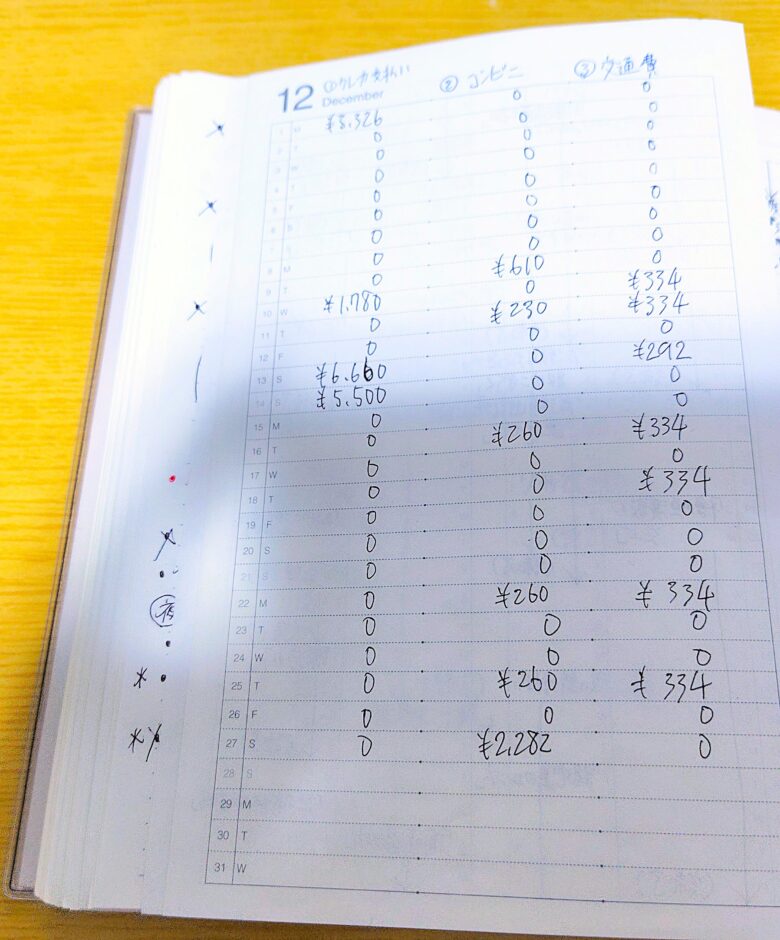 12 December ①クレカ支払い ② コンビニ ③ 交通費
1 M ¥3.326 0 0
2 T 0 0 0
3 W 0 0 0
4 T 0 0 0
5 F 0 0 0
6 S 0 0 0
7 S 0 0 0
8 M 0 0 0
9 T 0 ¥610 0
10 W ¥1.780 0 ¥334
11 T 0 ¥230 ¥334
12 F 0 0 0
13 S ¥6.660 0 ¥292
14 S ¥5.500 0 0
15 M 0 0 0
16 T 0 ¥260 ¥334
17 W 0 0 0
18 T 0 0 ¥334
19 F 0 0 0
20 S 0 0 0
21 S 0 0 0
22 M 0 ¥260 ¥334
23 T 0 0 0
24 W 0 0 0
25 T 0 ¥260 ¥334
26 F 0 0 0
27 S 0 ¥2,282 0
28 S
29 M
30 T
31 W